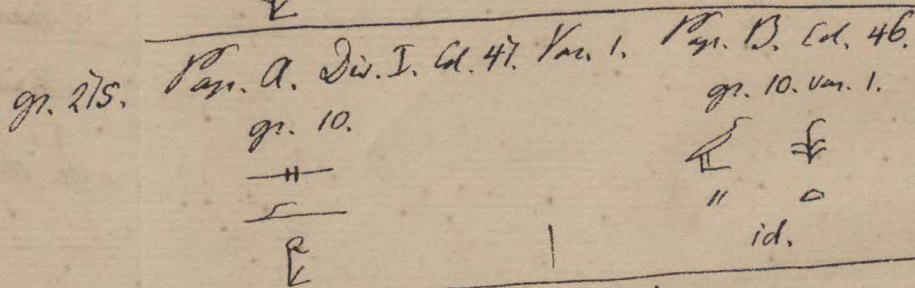 gr. 275. Pap. A. Div. I. Col. 47. Var. 1. Pap. B. Col. 46.
gr. 10. gr. 10. var. 1.
id.